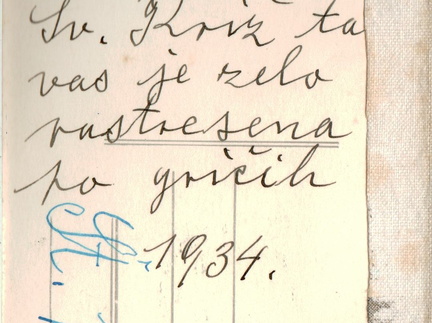 Sv. Križ ta
vas je zelo
rastresena
po gričih
1934.